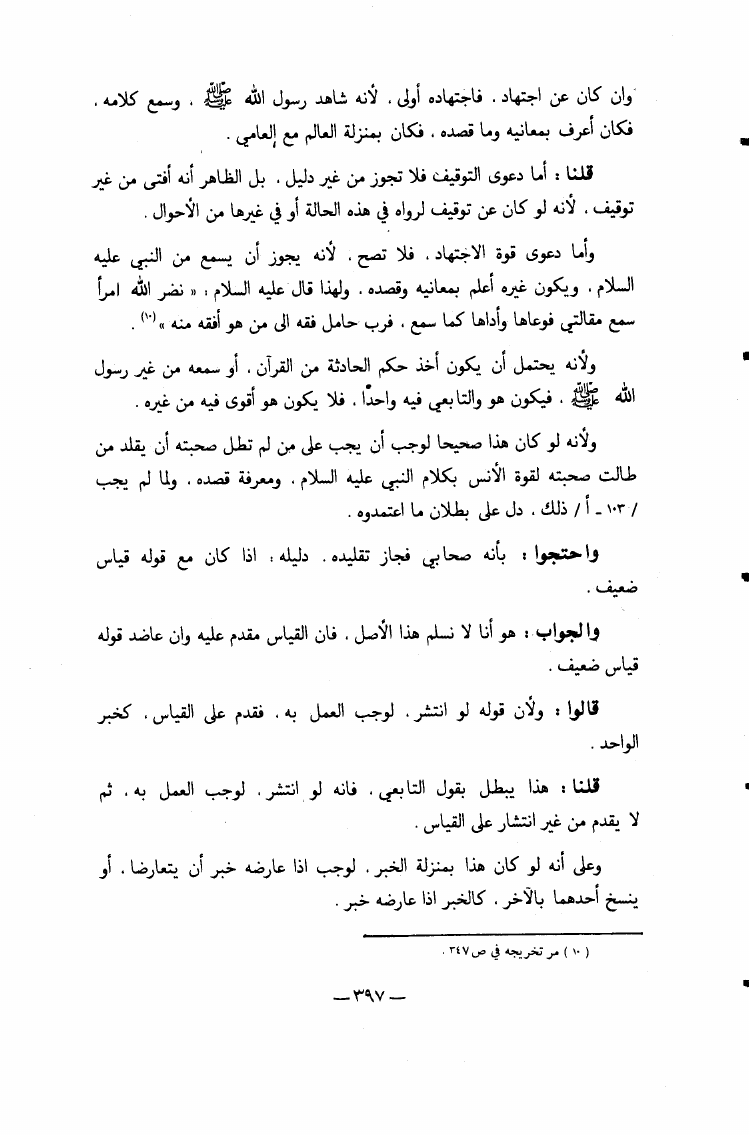 وان كان عن اجتهاد ، فاجتهاده أولى ، لأنه شاهد رسول الله ﷺ ، وسمع كلامه ،
فكان أعرف بمعانيه وما قصده ، فكان بمنزلة العالم مع العامي .
قلنا : أما دعوى التوقيف فلا تجوز من غير دليل ، بل الظاهر أنه أفتى من غير
توقيف ، لأنه لو كان عن توقيف لرواه في هذه الحالة أو في غيرها من الأحوال .
وأما دعوى قوة الاجتهاد ، فلا تصح ، لأنه يجوز أن يسمع من النبي عليه
السلام ، ويكون غيره أعلم بمعانيه وقصده ، ولهذا قال عليه السلام : « نضر الله امرأ
سمع مقالتي فوعاها وأداها كما سمع ، فرب حامل فقه الى من هو أفقه منه » (١٠) .
ولأنه يحتمل أن يكون أخذ حكم الحادثة من القرآن ، أو سمعه من غير رسول
الله ﷺ ، فيكون هو والتابعي فيه واحدًا ، فلا يكون هو أقوى فيه من غيره .
ولأنه لو كان هذا صحيحا لوجب أن يجب على من لم تطل صحبته أن يقلد من
طالت صحبته لقوة الأنس بكلام النبي عليه السلام ، ومعرفة قصده ، ولما لم يجب
/ ١٠٣ ـ أ / ذلك ، دل على بطلان ما اعتمدوه .
واحتجوا : بأنه صحابي فجاز تقليده . دليله : اذا كان مع قوله قياس
ضعيف .
والجواب : هو أنا لا نسلم هذا الأصل ، فان القياس مقدم عليه وان عاضد قوله
قياس ضعيف .
قالوا : ولأن قوله لو انتشر ، لوجب العمل به ، فقدم على القياس ، كخبر
الواحد .
قلنا : هذا يبطل بقول التابعي ، فانه لو انتشر ، لوجب العمل به ، ثم
لا يقدم من غير انتشار على القياس .
وعلى أنه لو كان هذا بمنزلة الخبر ، لوجب اذا عارضه خبر أن يتعارضا ، أو
ينسخ أحدهما بالآخر ، كالخبر اذا عارضه خبر .
( ١٠ ) مر تخريجه في ص٣٤٧ .
— ٣٩٧ —